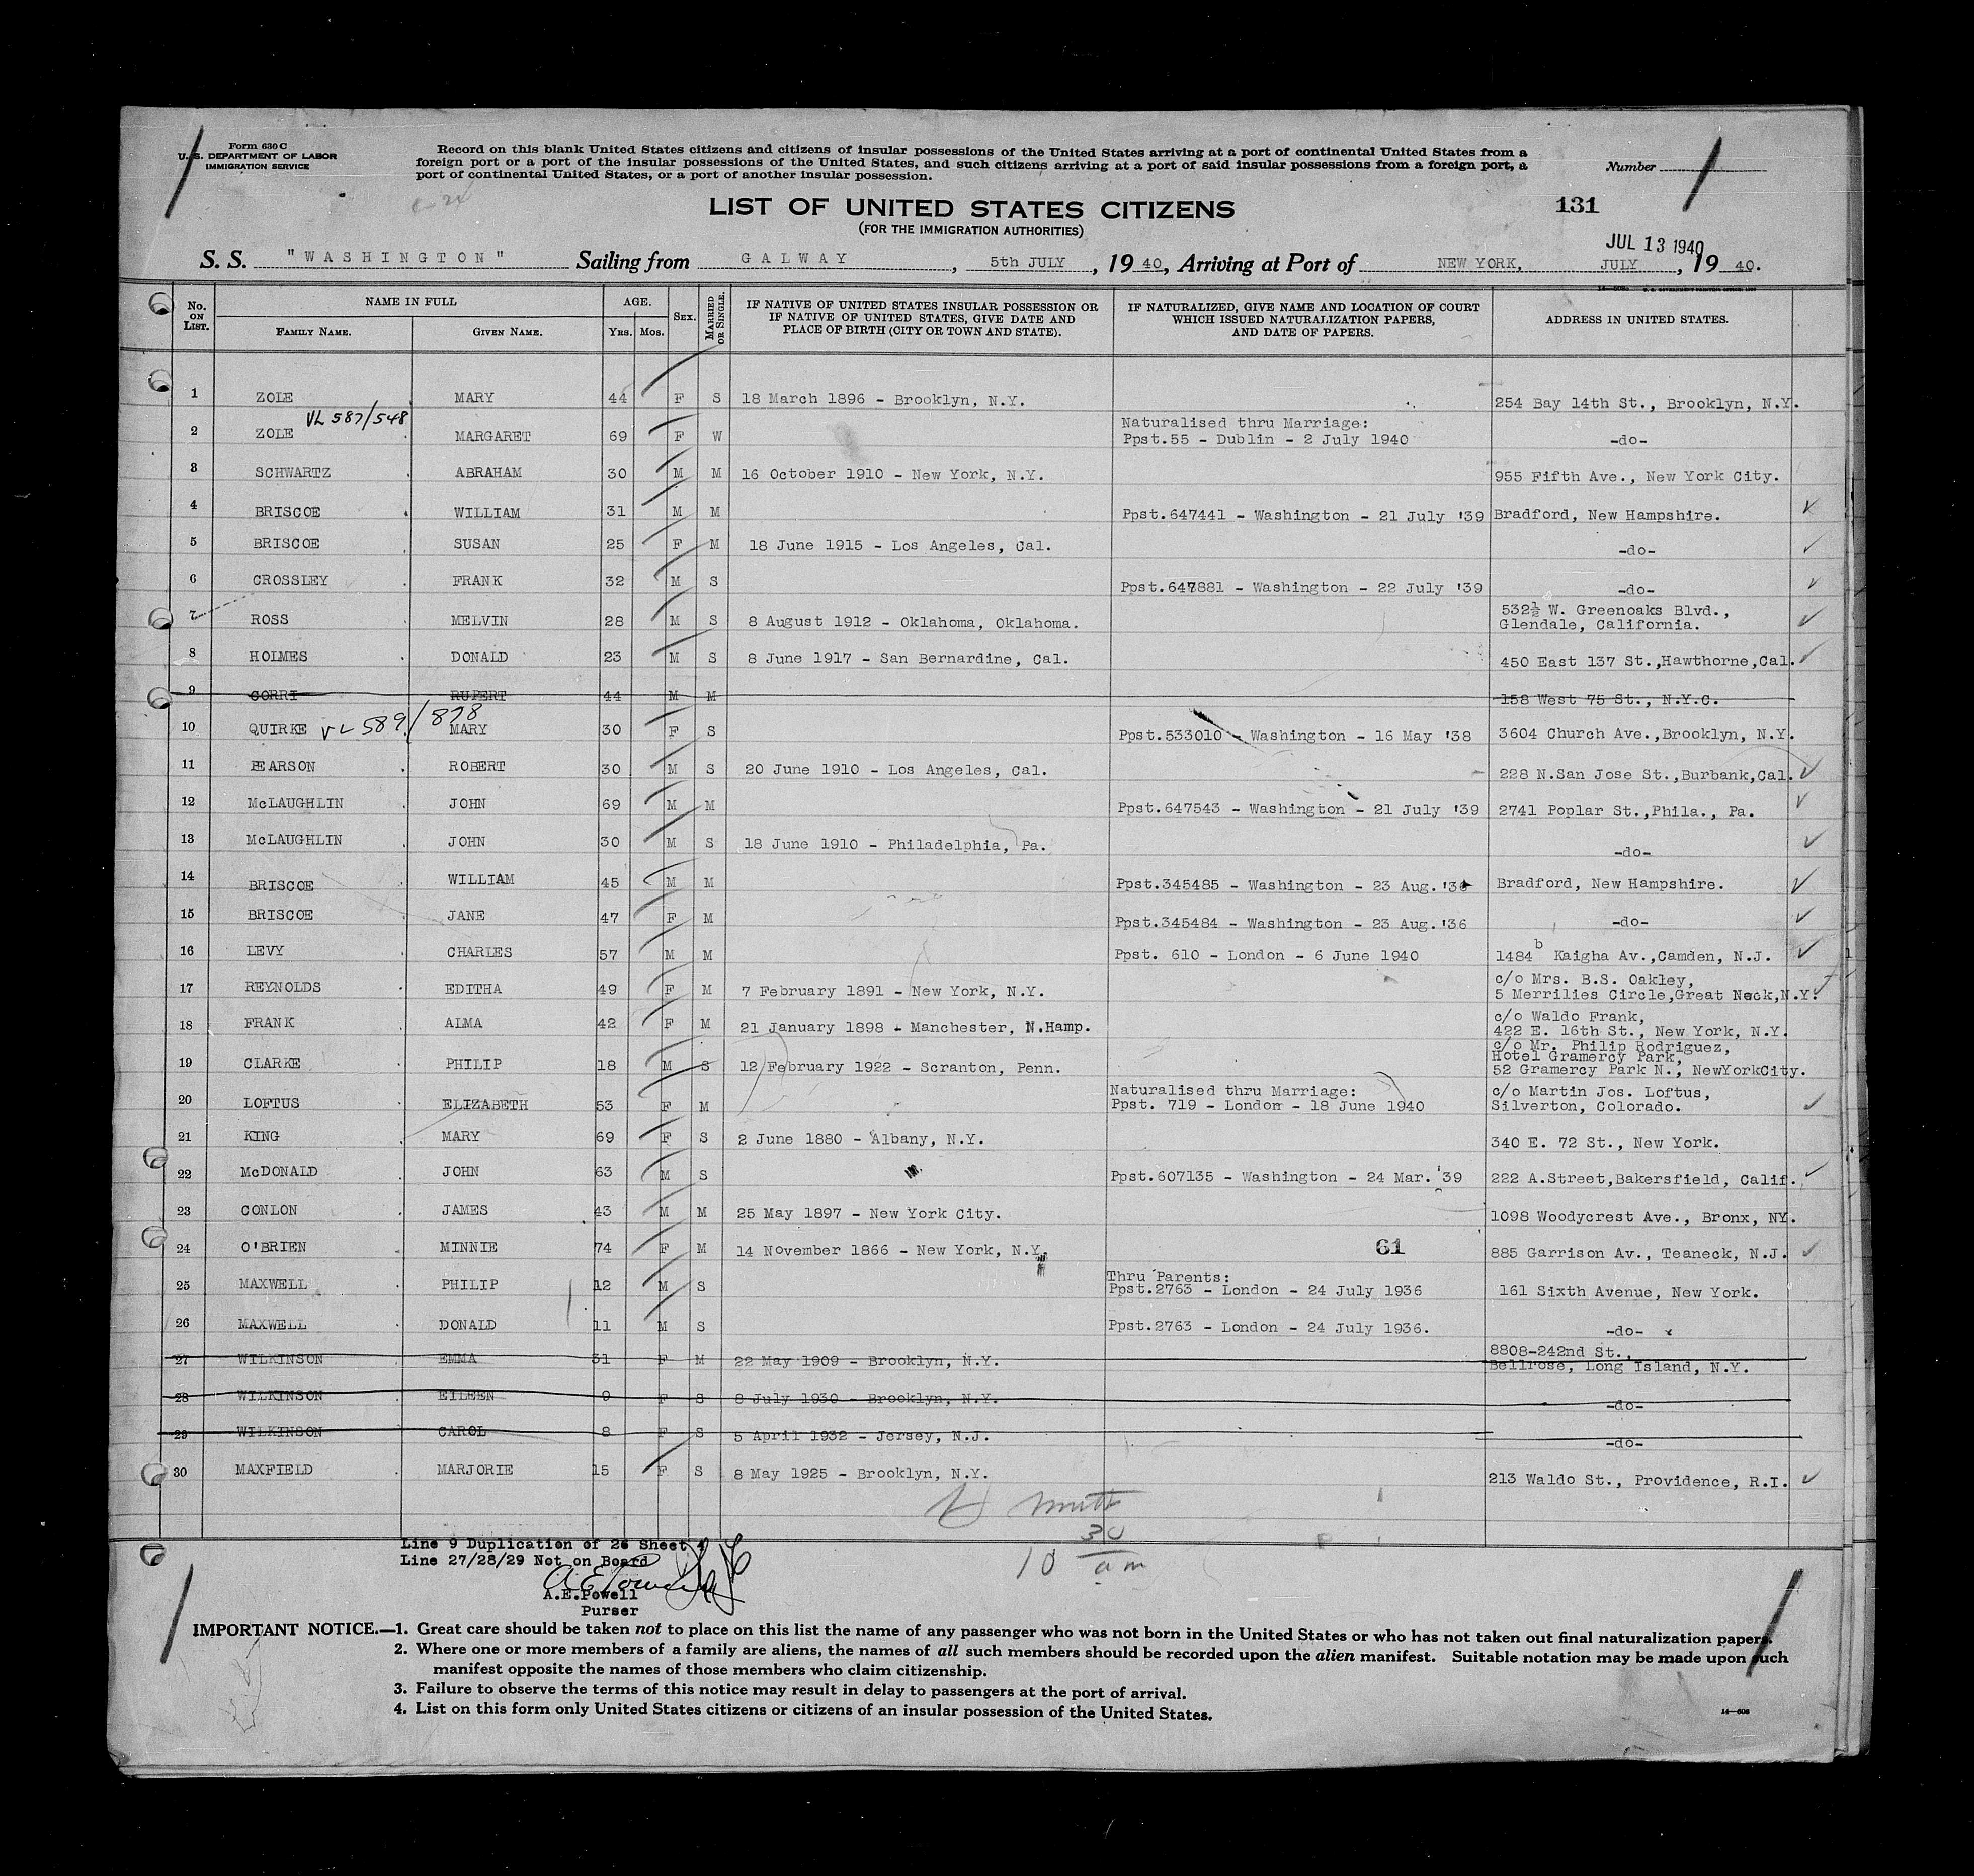 Form 630 C
U. S. DEPARTMENT OF LABOR
IMMIGRATION SERVICE
Record on this blank United States citizens and citizens of insular possessions of the United States arriving at a port of continental United States from a
foreign port or a port of the insular possessions of the United States, and such citizens arriving at a port of said insular possessions from a foreign port, a
port of continental United States, or a port of another insular possession.
Number
131
LIST OF UNITED STATES CITIZENS
(FOR THE IMMIGRATION AUTHORITIES)
JUL 13 1940
S. S. "WASHINGTON" Sailing from GALWAY, 5th JULY, 19 40, Arriving at Port of NEW YORK, JULY, 19 40.
No. ON LIST. NAME IN FULL FAMILY NAME. GIVEN NAME. AGE. YRS. MOS. SEX. MARRIED OR SINGLE. IF NATIVE OF UNITED STATES INSULAR POSSESSION OR IF NATIVE OF UNITED STATES, GIVE DATE AND PLACE OF BIRTH (CITY OR TOWN AND STATE). IF NATURALIZED, GIVE NAME AND LOCATION OF COURT WHICH ISSUED NATURALIZATION PAPERS, AND DATE OF PAPERS. ADDRESS IN UNITED STATES.
1 ZOLE MARY 44 F S 18 March 1896 - Brooklyn, N.Y. 254 Bay 14th St., Brooklyn, N.Y.
VL 587/548
2 ZOLE MARGARET 69 F W Naturalised thru Marriage: Ppst.55 - Dublin - 2 July 1940 -do-
3 SCHWARTZ ABRAHAM 30 M M 16 October 1910 - New York, N.Y. 955 Fifth Ave., New York City.
4 BRISCOE WILLIAM 31 M M Ppst.647441 - Washington - 21 July '39 Bradford, New Hampshire.
5 BRISCOE SUSAN 25 F M 18 June 1915 - Los Angeles, Cal. -do-
6 CROSSLEY FRANK 32 M S Ppst.647881 - Washington - 22 July '39 -do-
7 ROSS MELVIN 28 M S 8 August 1912 - Oklahoma, Oklahoma. 532½ W. Greenoaks Blvd., Glendale, California.
8 HOLMES DONALD 23 M S 8 June 1917 - San Bernardine, Cal. 450 East 137 St.,Hawthorne,Cal.
9 CORRI RUPERT 44 M M 158 West 75 St., N.Y.C.
10 QUIRKE VL 589/878 MARY 30 F S Ppst.533010 - Washington - 16 May '38 3604 Church Ave.,Brooklyn, N.Y.
11 PEARSON ROBERT 30 M S 20 June 1910 - Los Angeles, Cal. 228 N.San Jose St.,Burbank,Cal.
12 McLAUGHLIN JOHN 69 M M Ppst.647543 - Washington - 21 July '39 2741 Poplar St.,Phila., Pa.
13 McLAUGHLIN JOHN 30 M S 18 June 1910 - Philadelphia, Pa. -do-
14 BRISCOE WILLIAM 45 M M Ppst.345485 - Washington - 23 Aug.'36 Bradford, New Hampshire.
15 BRISCOE JANE 47 F M Ppst.345484 - Washington - 23 Aug.'36 -do-
16 LEVY CHARLES 57 M M Ppst. 610 - London - 6 June 1940 1484 b Kaigha Av.,Camden, N.J.
17 REYNOLDS EDITHA 49 F M 7 February 1891 - New York, N.Y. c/o Mrs. B.S. Oakley, 5 Merrilies Circle,Great Neck,N.Y.
18 FRANK ALMA 42 F M 21 January 1898 - Manchester, N.Hamp. c/o Waldo Frank, 422 E. 16th St., New York, N.Y.
19 CLARKE PHILIP 18 M S 12 February 1922 - Scranton, Penn. c/o Mr. Philip Rodriguez, Hotel Gramercy Park, 52 Gramercy Park N., NewYorkCity.
20 LOFTUS ELIZABETH 53 F M Naturalised thru Marriage: Ppst. 719 - London - 18 June 1940 c/o Martin Jos. Loftus, Silverton, Colorado.
21 KING MARY 69 F S 2 June 1880 - Albany, N.Y. 340 E. 72 St., New York.
22 McDONALD JOHN 63 M S Ppst.607135 - Washington - 24 Mar. '39 222 A.Street,Bakersfield, Calif.
23 CONLON JAMES 43 M M 25 May 1897 - New York City. 1098 Woodycrest Ave., Bronx, NY.
24 O'BRIEN MINNIE 74 F M 14 November 1866 - New York, N.Y. 61 885 Garrison Av., Teaneck, N.J.
25 MAXWELL PHILIP 12 M S Thru Parents: Ppst.2763 - London - 24 July 1936 161 Sixth Avenue, New York.
26 MAXWELL DONALD 11 M S Ppst.2763 - London - 24 July 1936. -do-
27 WILKINSON EMMA 31 F M 22 May 1909 - Brooklyn, N.Y. 8808-242nd St., Bellrose, Long Island, N.Y.
28 WILKINSON EILEEN 9 F S 8 July 1930 - Brooklyn, N.Y. -do-
29 WILKINSON CAROL 8 F S 5 April 1932 - Jersey, N.J. -do-
30 MAXFIELD MARJORIE 15 F S 8 May 1925 - Brooklyn, N.Y. 213 Waldo St., Providence, R.I.
10 30 am
Line 9 Duplication of 26 Sheet 4
Line 27/28/29 Not on Board
A.E.Powell
Purser
IMPORTANT NOTICE.—1. Great care should be taken not to place on this list the name of any passenger who was not born in the United States or who has not taken out final naturalization papers.
2. Where one or more members of a family are aliens, the names of all such members should be recorded upon the alien manifest. Suitable notation may be made upon such
manifest opposite the names of those members who claim citizenship.
3. Failure to observe the terms of this notice may result in delay to passengers at the port of arrival.
4. List on this form only United States citizens or citizens of an insular possession of the United States.